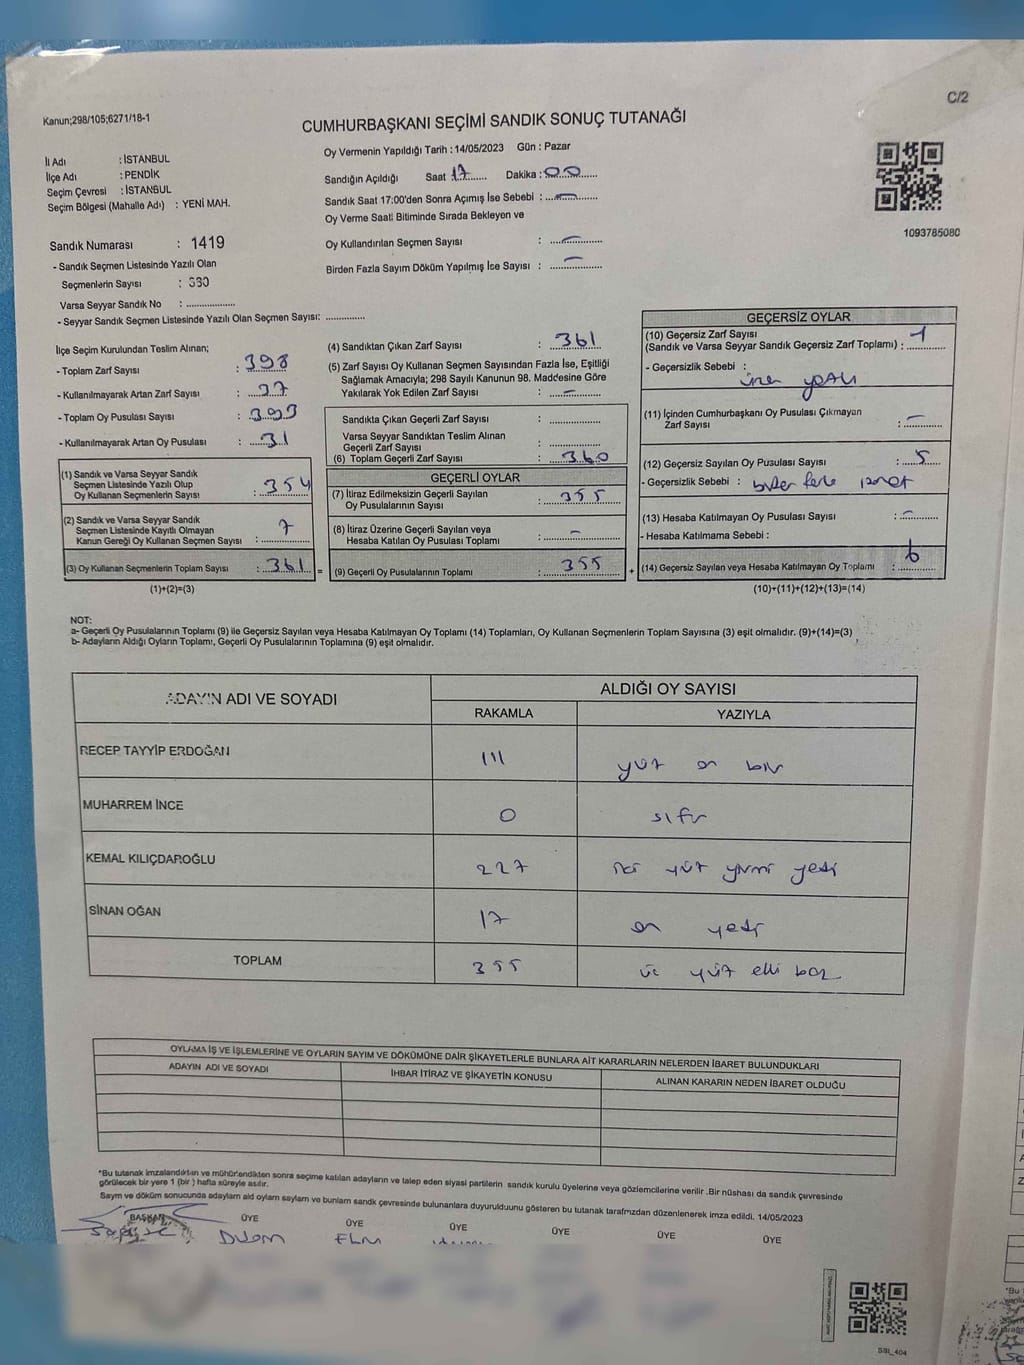 C/2
Kanun;298/105;6271/18-1
CUMHURBAŞKANI SEÇİMİ SANDIK SONUÇ TUTANAĞI
İl Adı : İSTANBUL
İlçe Adı : PENDİK
Seçim Çevresi : İSTANBUL
Seçim Bölgesi (Mahalle Adı) : YENİ MAH.
Oy Vermenin Yapıldığı Tarih : 14/05/2023 Gün : Pazar
Sandığın Açıldığı Saat 17 Dakika : 00
Sandık Saat 17:00'den Sonra Açımış İse Sebebi : —
Oy Verme Saati Bitiminde Sırada Bekleyon ve
Oy Kullandırılan Seçmen Sayısı : —
Birden Fazla Sayım Döküm Yapılmış İse Sayısı : —
1093785080
Sandık Numarası : 1419
- Sandık Seçmen Listesinde Yazılı Olan
Seçmenlerin Sayısı : 380
Varsa Seyyar Sandık No : ................
- Seyyar Sandık Seçmen Listesinde Yazılı Olan Seçmen Sayısı: .............
İlçe Seçim Kurulundan Teslim Alınan;
- Toplam Zarf Sayısı : 398
- Kullanılmayarak Artan Zarf Sayısı : 37
- Toplam Oy Pusulası Sayısı : 393
- Kullanılmayarak Artan Oy Pusulası : 31
(1) Sandık ve Varsa Seyyar Sandık
Seçmen Listesinde Yazılı Olup
Oy Kullanan Seçmenlerin Sayısı : 354
(2) Sandık ve Varsa Seyyar Sandık
Seçmen Listesinde Kayıtlı Olmayan
Kanun Gereği Oy Kullanan Seçmen Sayısı : 7
(3) Oy Kullanan Seçmenlerin Toplam Sayısı : 361 =
(1)+(2)=(3)
(4) Sandıktan Çıkan Zarf Sayısı : 361
(5) Zarf Sayısı Oy Kullanan Seçmen Sayısından Fazla İse, Eşitliği
Sağlamak Amacıyla; 298 Sayılı Kanunun 98. Maddesine Göre
Yakılarak Yok Edilen Zarf Sayısı : —
Sandıkta Çıkan Geçerli Zarf Sayısı : ................
Varsa Seyyar Sandıktan Teslim Alınan
Geçerli Zarf Sayısı : ................
(6) Toplam Geçerli Zarf Sayısı : 360
GEÇERLİ OYLAR
(7) İtiraz Edilmeksizin Geçerli Sayılan
Oy Pusulalarının Sayısı : 355
(8) İtiraz Üzerine Geçerli Sayılan veya
Hesaba Katılan Oy Pusulası Toplamı : —
(9) Geçerli Oy Pusulalarının Toplamı : 355 +
GEÇERSİZ OYLAR
(10) Geçersiz Zarf Sayısı
(Sandık ve Varsa Seyyar Sandık Geçersiz Zarf Toplamı) : 1
- Geçersizlik Sebebi :
(11) İçinden Cumhurbaşkanı Oy Pusulası Çıkmayan
Zarf Sayısı : —
(12) Geçersiz Sayılan Oy Pusulası Sayısı : 5
- Geçersizlik Sebebi :
(13) Hesaba Katılmayan Oy Pusulası Sayısı : —
- Hesaba Katılmama Sebebi :
(14) Geçersiz Sayılan veya Hesaba Katılmayan Oy Toplamı : 6
(10)+(11)+(12)+(13)=(14)
NOT:
a- Geçerli Oy Pusulalarının Toplamı (9) ile Geçersiz Sayılan veya Hesaba Katılmayan Oy Toplamı (14) Toplamları, Oy Kullanan Seçmenlerin Toplam Sayısına (3) eşit olmalıdır. (9)+(14)=(3)
b- Adayların Aldığı Oyların Toplamı, Geçerli Oy Pusulalarının Toplamına (9) eşit olmalıdır.
ADAYIN ADI VE SOYADI
ALDIĞI OY SAYISI
RAKAMLA YAZIYLA
RECEP TAYYİP ERDOĞAN 111 yüz on bir
MUHARREM İNCE 0 sıfır
KEMAL KILIÇDAROĞLU 227 iki yüz yirmi yedi
SİNAN OĞAN 17 on yedi
TOPLAM 355 üç yüz elli beş
OYLAMA İŞ VE İŞLEMLERİNE VE OYLARIN SAYIM VE DÖKÜMÜNE DAİR ŞİKAYETLERLE BUNLARA AİT KARARLARIN NELERDEN İBARET BULUNDUKLARI
ADAYIN ADI VE SOYADI İHBAR İTİRAZ VE ŞİKAYETİN KONUSU ALINAN KARARIN NEDEN İBARET OLDUĞU
*Bu tutanak imzalandıktan ve mühürlendikten sonra seçime katılan adayların ve talep eden siyasi partilerin sandık kurulu üyelerine veya gözlemcilerine verilir .Bir nüshası da sandık çevresinde
görülecek bir yere 1 (bir ) hafta süreyle asılır.
Sayım ve döküm sonucunda adayların ald oyların sayların ve bunların sandık çevresinde bulunanlara duyurulduunu gösteren bu tutanak tarafmzdan düzenlenerek imza edildi. 14/05/2023
BAŞKAN ÜYE ÜYE ÜYE ÜYE ÜYE ÜYE
SSI_404